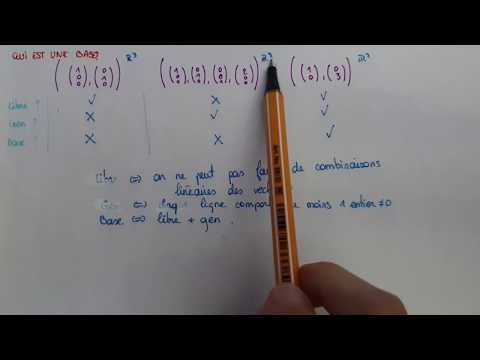 QUI EST UNE BASE
((1 0 0), (0 1 0)) ℝ³ ((1 0 0), (0 1 0), (0 0 1), (2 0 0)) ℝ³ ((1 0), (0 3)) ℝ³
Libre ? ✓ X ✓
Gen ? X ✓
Base ? X X ✓
Libre ⇔ on ne peut pas de combinaisons
linéaires des
Gen ⇔ ligne moins 1 entier ≠ 0
Base ⇔ libre + gen.